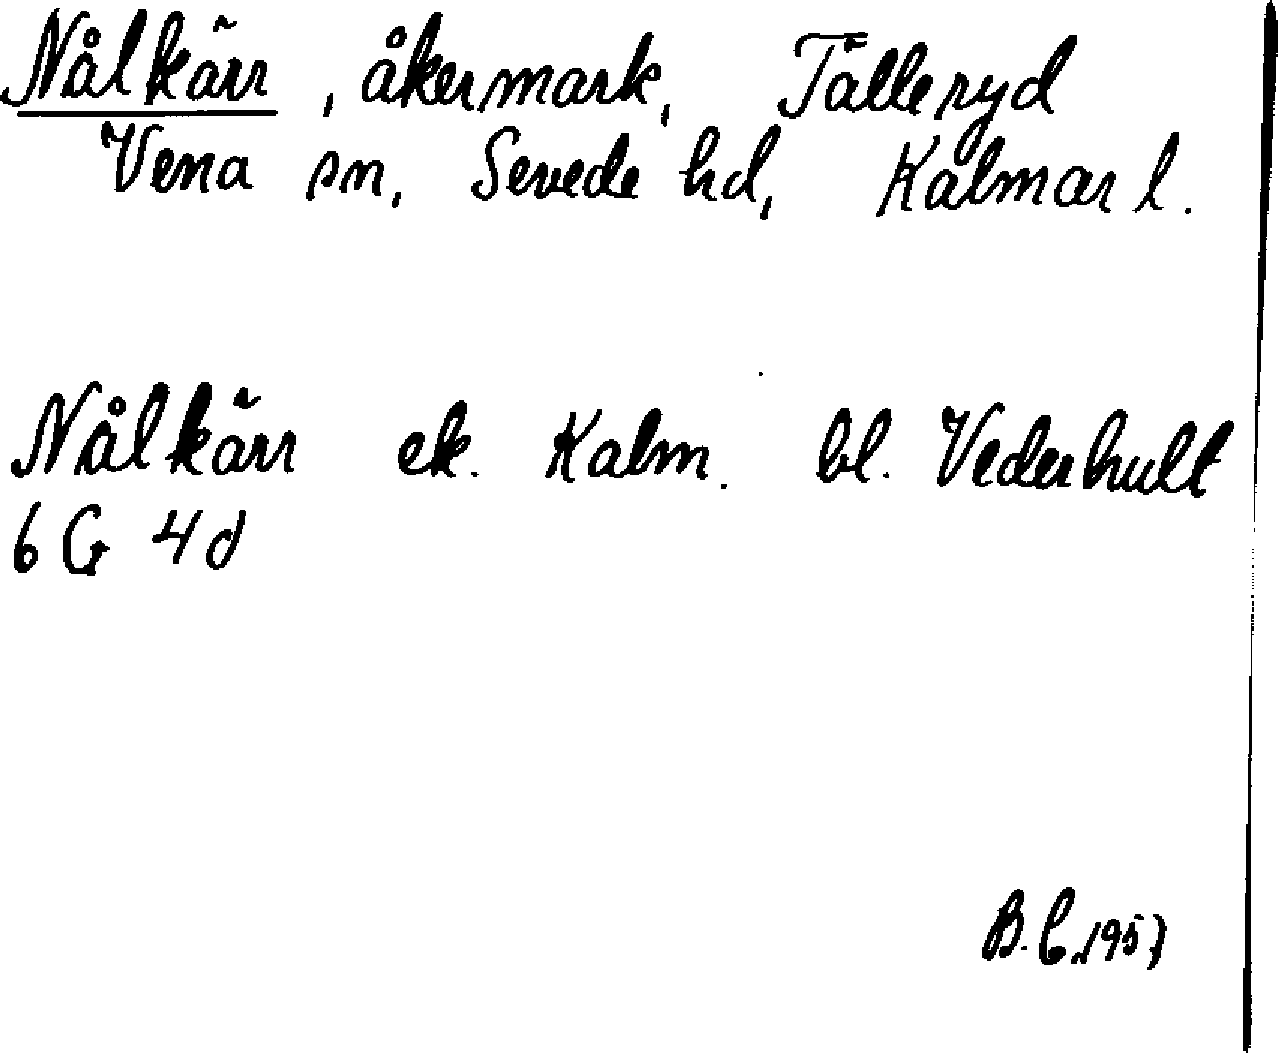 Nålkärr, åkermark, Tälleryd
Vena sn, Sevede hd, Kalmar l.
Nålkärr ek. Kalm. bl. Vederhult
6 G 4d
B.C. 1957